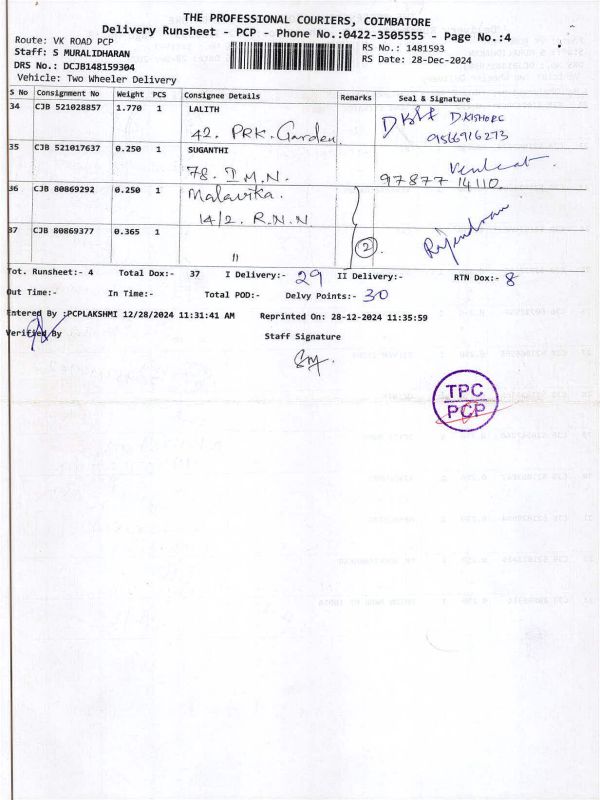 THE PROFESSIONAL COURIERS, COIMBATORE
Delivery Runsheet - PCP - Phone No.:0422-3505555 - Page No.:4
Route: VK ROAD PCP
RS No.: 1481593
Staff: S MURALIDHARAN
RS Date: 28-Dec-2024
DRS No.: DCJB148159304
Vehicle: Two Wheeler Delivery
S No Consignment No Weight PCS Consignee Details Remarks Seal & Signature
34 CJB 521028857 1.770 1 LALITH
42. PRK. Garden
D KISHORE
9566916273
35 CJB 521017637 0.250 1 SUGANTHI
78. I M.N.
Venkeat
97877 14110
36 CJB 80869292 0.250 1 Malavika.
14/2. R.N.N
37 CJB 80869377 0.365 1
"
2
Rajendran
Tot. Runsheet:- 4 Total Dox:- 37 I Delivery:- 29 II Delivery:- RTN Dox:- 8
Out Time:- In Time:- Total POD:- Delvy Points:- 30
Entered By :PCPLAKSHMI 12/28/2024 11:31:41 AM Reprinted On: 28-12-2024 11:35:59
Verified By
Staff Signature
TPC
PCP